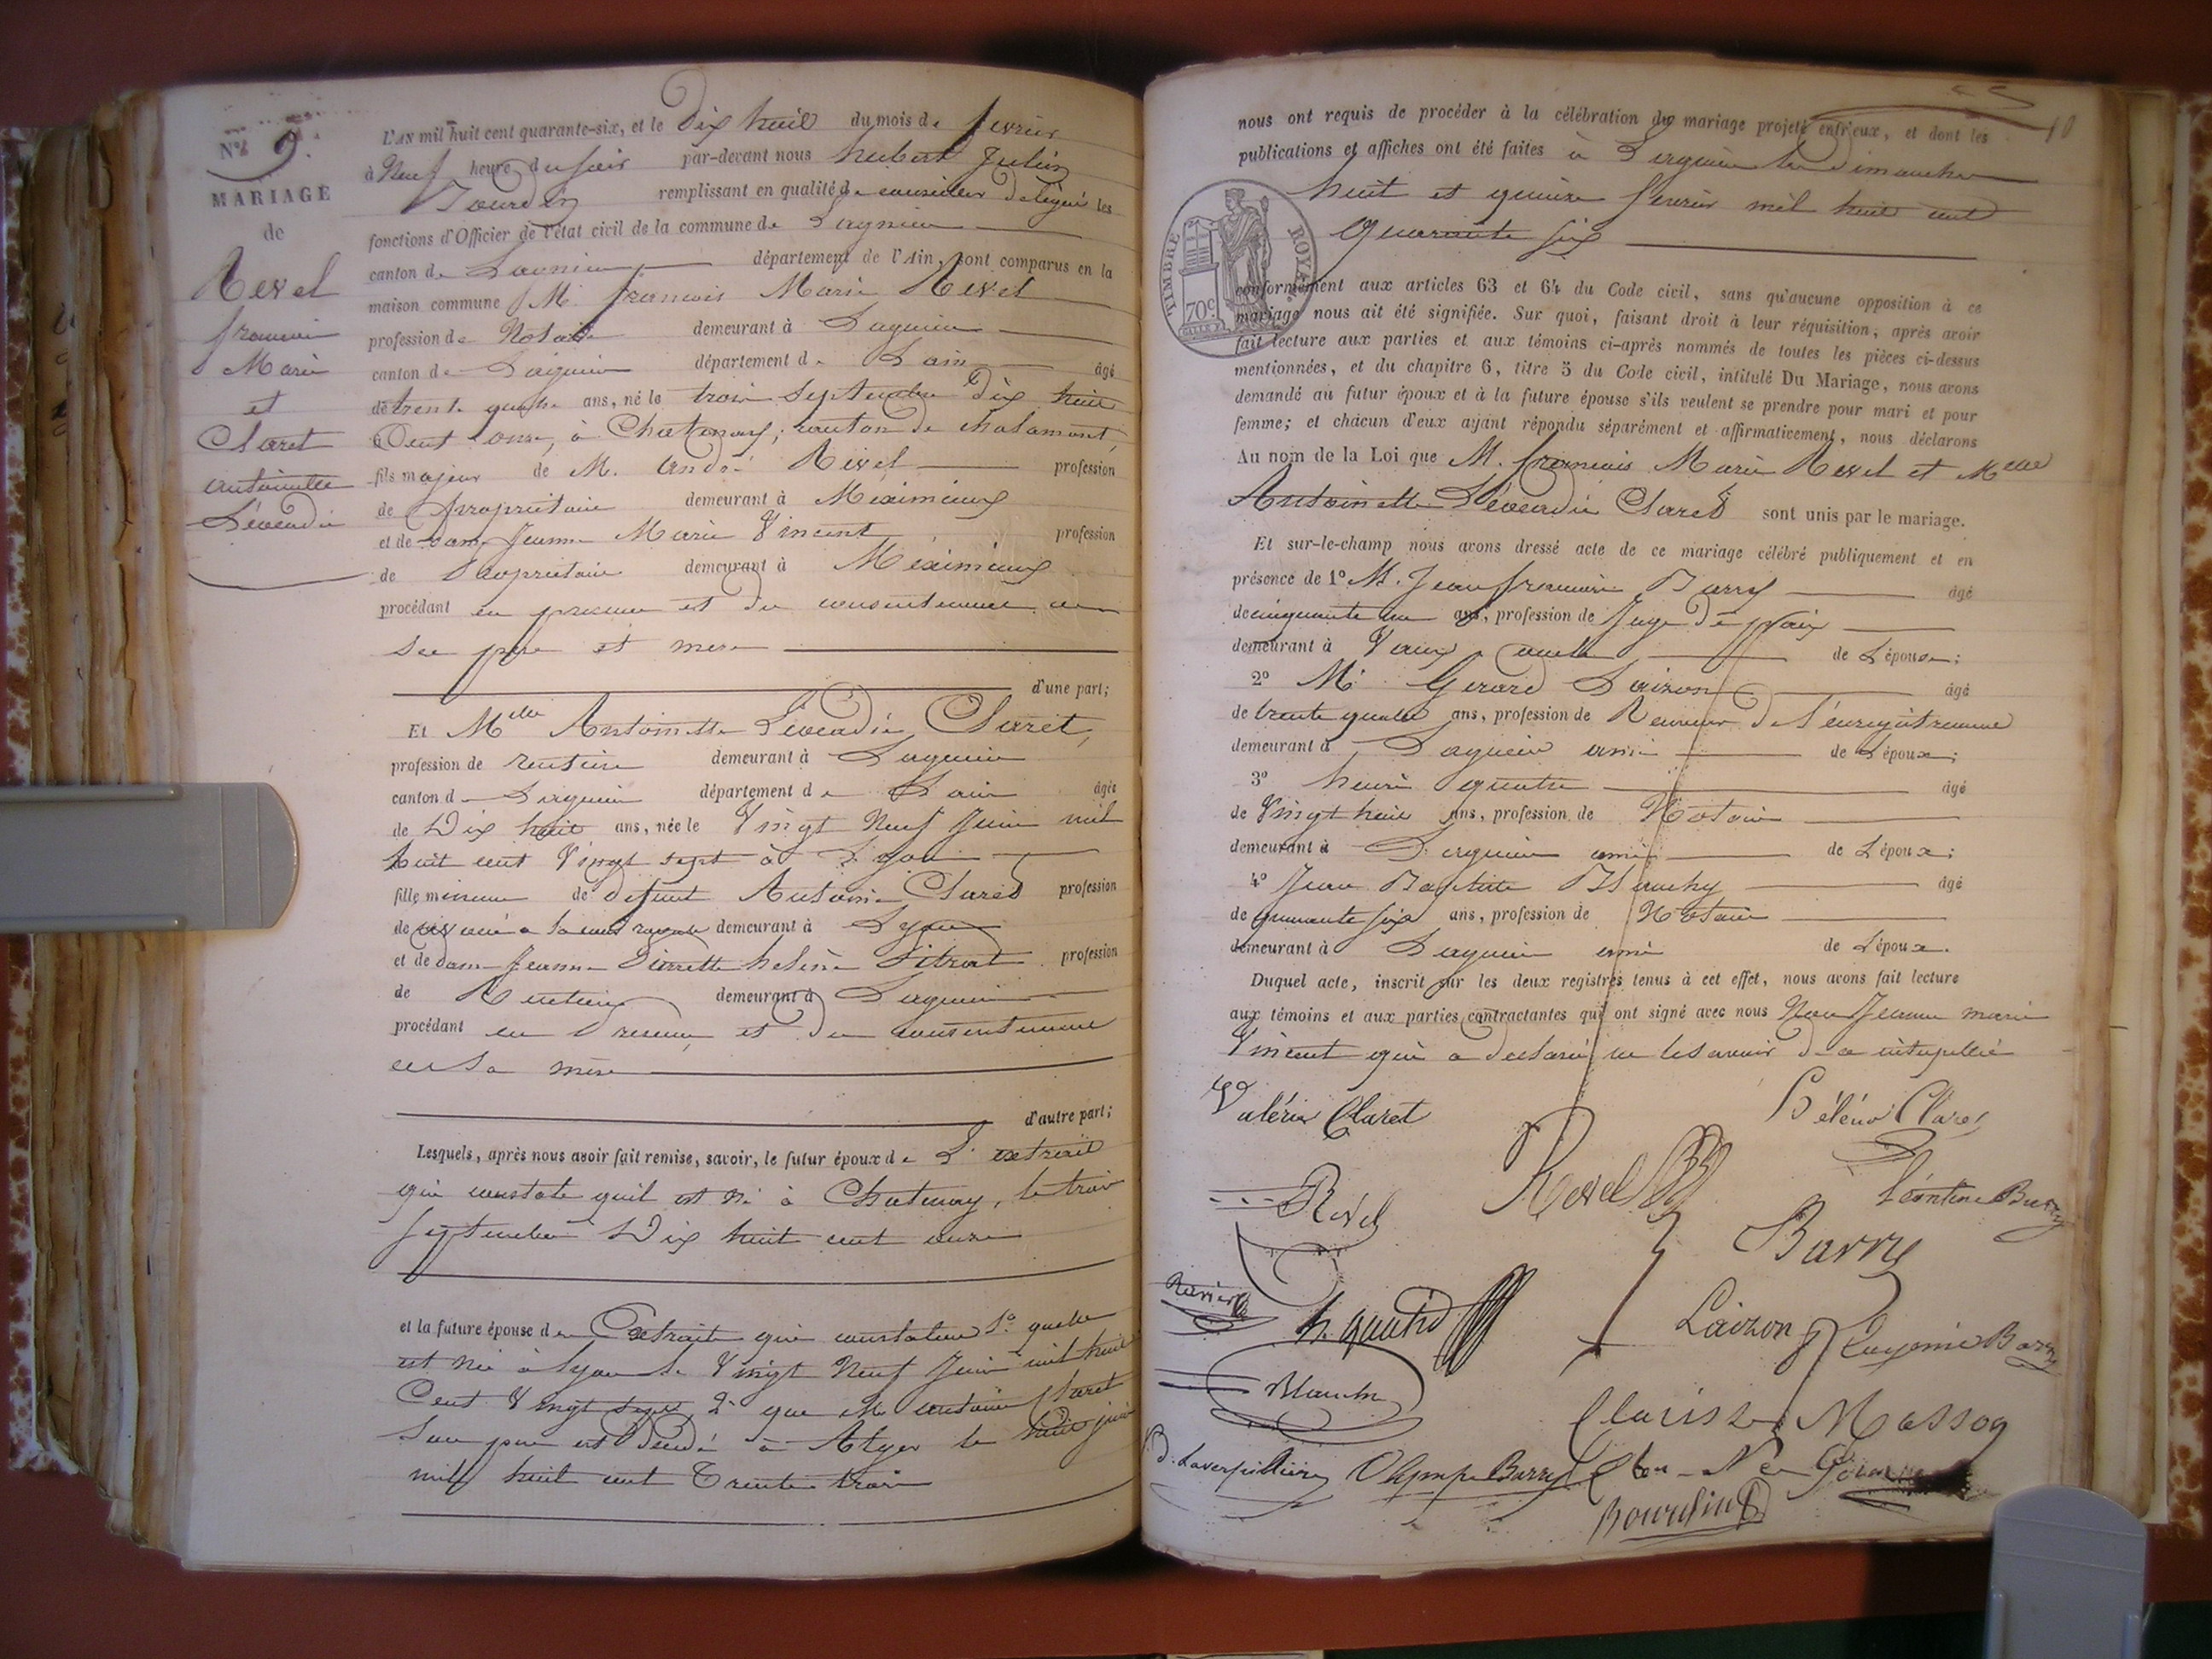 N° 9.
MARIAGE
de
Revel
françois
Marie
et
Claret
antoinette
Léocadie
L'AN mil huit cent quarante-six, et le Dix huit du mois de fevrier
à Neuf heure du soir par-devant nous hubert Julien
Jourdin remplissant en qualité de conseiller délégué les
fonctions d'Officier de l'état civil de la commune de Lagnieu
canton de Lagnieu département de l'Ain, sont comparus en la
maison commune M. françois Marie Revel
profession de Notaire demeurant à Lagnieu
canton de Lagnieu département de Lain âgé
de trente quatre ans, né le trois Septembre Dix huit
Cent onze, à Chatenay, canton de chalamont,
fils majeur de M. andré Revel profession
de propriétaire demeurant à Méximieux
et de dame Jeanne Marie Vincent profession
de Propriétaire demeurant à Méximieux
procédant en présence et du consentement de
ses père et mère
d'une part;
Et Melle Antoinette Léocadie Claret,
profession de rentière demeurant à Lagnieu
canton de Lagnieu département de Lain âgée
de Dix huit ans, née le Vingt Neuf Juin mil
huit cent Vingt sept à Lyon
fille mineure de défunt Antoine Claret profession
de avoué à la cour royale demeurant à Lyon
et de dame Jeanne Pierrette helène Litrat profession
de Rentière demeurant à Lagnieu
procédant en Présence et du consentement
de sa mère
d'autre part;
Lesquels, après nous avoir fait remise, savoir, le futur époux de L'extrait
qui constate qu'il est né à Chatenay, le trois
septembre Dix huit cent onze
et la future épouse de Extrait qui constatent 1° quelle
est née à Lyon le Vingt Neuf Juin mil huit
Cent Vingt sept, 2° que M antoine Claret
Son père est décédé à Alger le huit juin
mil huit cent Trente trois
10
nous ont requis de procéder à la célébration du mariage projeté entr'eux, et dont les
publications et affiches ont été faites à Lagnieu les Dimanches
huit et quinze fevrier mil huit cent
Quarante six
TIMBRE ROYAL
70c
conformément aux articles 63 et 64 du Code civil, sans qu'aucune opposition à ce
mariage nous ait été signifiée. Sur quoi, faisant droit à leur réquisition, après avoir
fait lecture aux parties et aux témoins ci-après nommés de toutes les pièces ci-dessus
mentionnées, et du chapitre 6, titre 5 du Code civil, intitulé Du Mariage, nous avons
demandé au futur époux et à la future épouse s'ils veulent se prendre pour mari et pour
femme; et chacun d'eux ayant répondu séparément et affirmativement, nous déclarons
Au nom de la Loi que M. françois Marie Revel et Melle
Antoinette Léocadie Claret sont unis par le mariage.
Et sur-le-champ nous avons dressé acte de ce mariage célébré publiquement et en
présence de 1° M. Jean françois Barry âgé
de cinquante un ans, profession de Juge de paix
demeurant à Vaux, oncle de L'épouse;
2° M. Gerard Laizon âgé
de trente quatre ans, profession de Receveur de l'enregistrement
demeurant à Lagnieu ami de L'époux;
3° henri gautier âgé
de Vingt huit ans, profession de Notaire
demeurant à Lagnieu ami de L'époux;
4° Jean Baptiste Blanchy âgé
de quarante six ans, profession de Notaire
demeurant à Lagnieu ami de L'époux.
Duquel acte, inscrit sur les deux registres tenus à cet effet, nous avons fait lecture
aux témoins et aux parties contractantes qui ont signé avec nous Non Jeanne marie
Vincent qui a déclaré ne le savoir de ce interpellée
Valérie Claret
Hélène Claret
Revel
Revel
Léontine Barry
Barry
Laizon
Eugénie Barry
Clarisse Masson
Olympe Barry